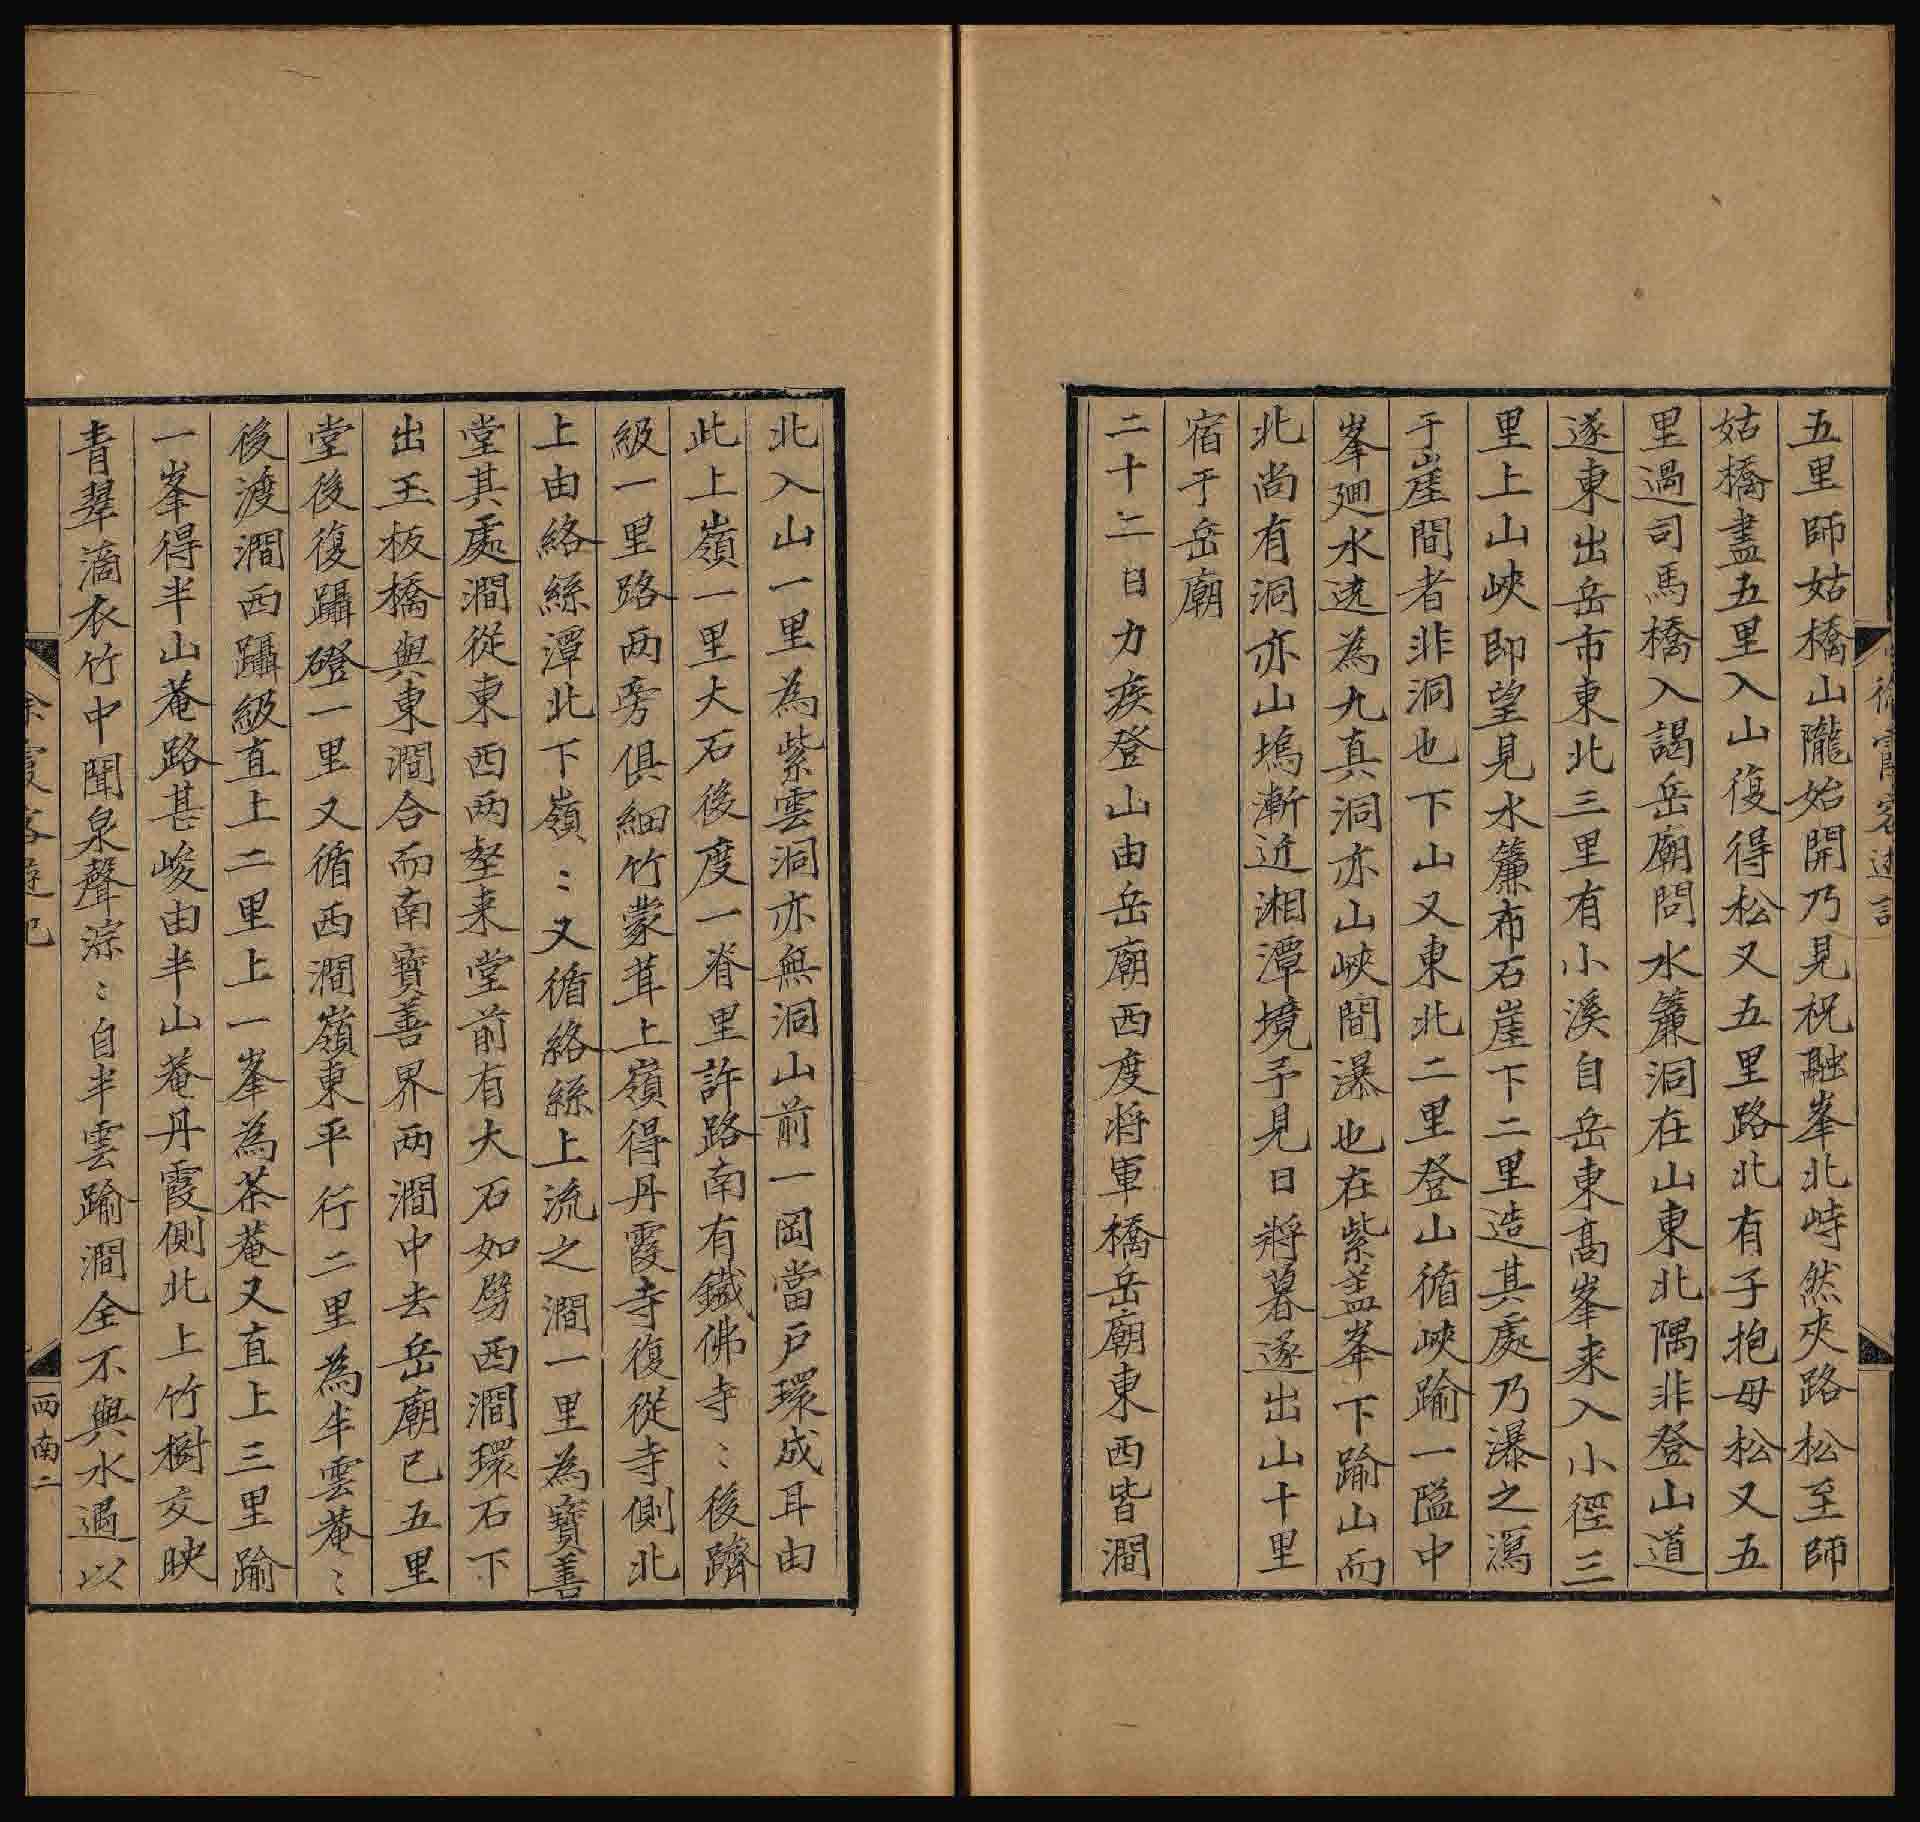 五里師姑橋山隴始開乃見祝融峯北峙然夾路松至師
姑橋盡五里入山復得松又五里路北有子抱母松又五
里過司馬橋入謁岳廟問水簾洞在山東北隅非登山道
遂東出岳市東北三里有小溪自岳東髙峯来入小徑三
里上山峽即望見水簾布石崖下二里造其處乃瀑之瀉
于崖間者非洞也下山又東北二里登山循峽踰一隘中
峯廻水遶為九真洞亦山峽間瀑也在紫盖峯下踰山而
北尚有洞亦山塢漸近湘潭境予見日將暮遂出山十里
宿于岳廟
二十二日力疾登山由岳廟西度将軍橋岳廟東西皆澗
北入山一里為紫雲洞亦無洞山前一岡當戸環成耳由
此上嶺一里大石後度一脊里許路南有鐵佛寺〻後躋
級一里路两旁俱細竹蒙茸上嶺得丹霞寺復從寺側北
上由絡絲潭北下嶺〻又循絡絲上流之澗一里為寶善
堂其處澗從東西两壑来堂前有大石如劈西澗環石下
出玉板橋與東澗合而南寶善界两澗中去岳廟已五里
堂後復躡磴一里又循西澗嶺東平行二里為半雲菴〻
後渡澗西躡級直上二里上一峯為茶菴又直上三里踰
一峯得半山菴路甚峻由半山菴丹霞側北上竹樹交映
青翠滴衣竹中聞泉聲淙〻自半雲踰澗全不與水遇以
西南二